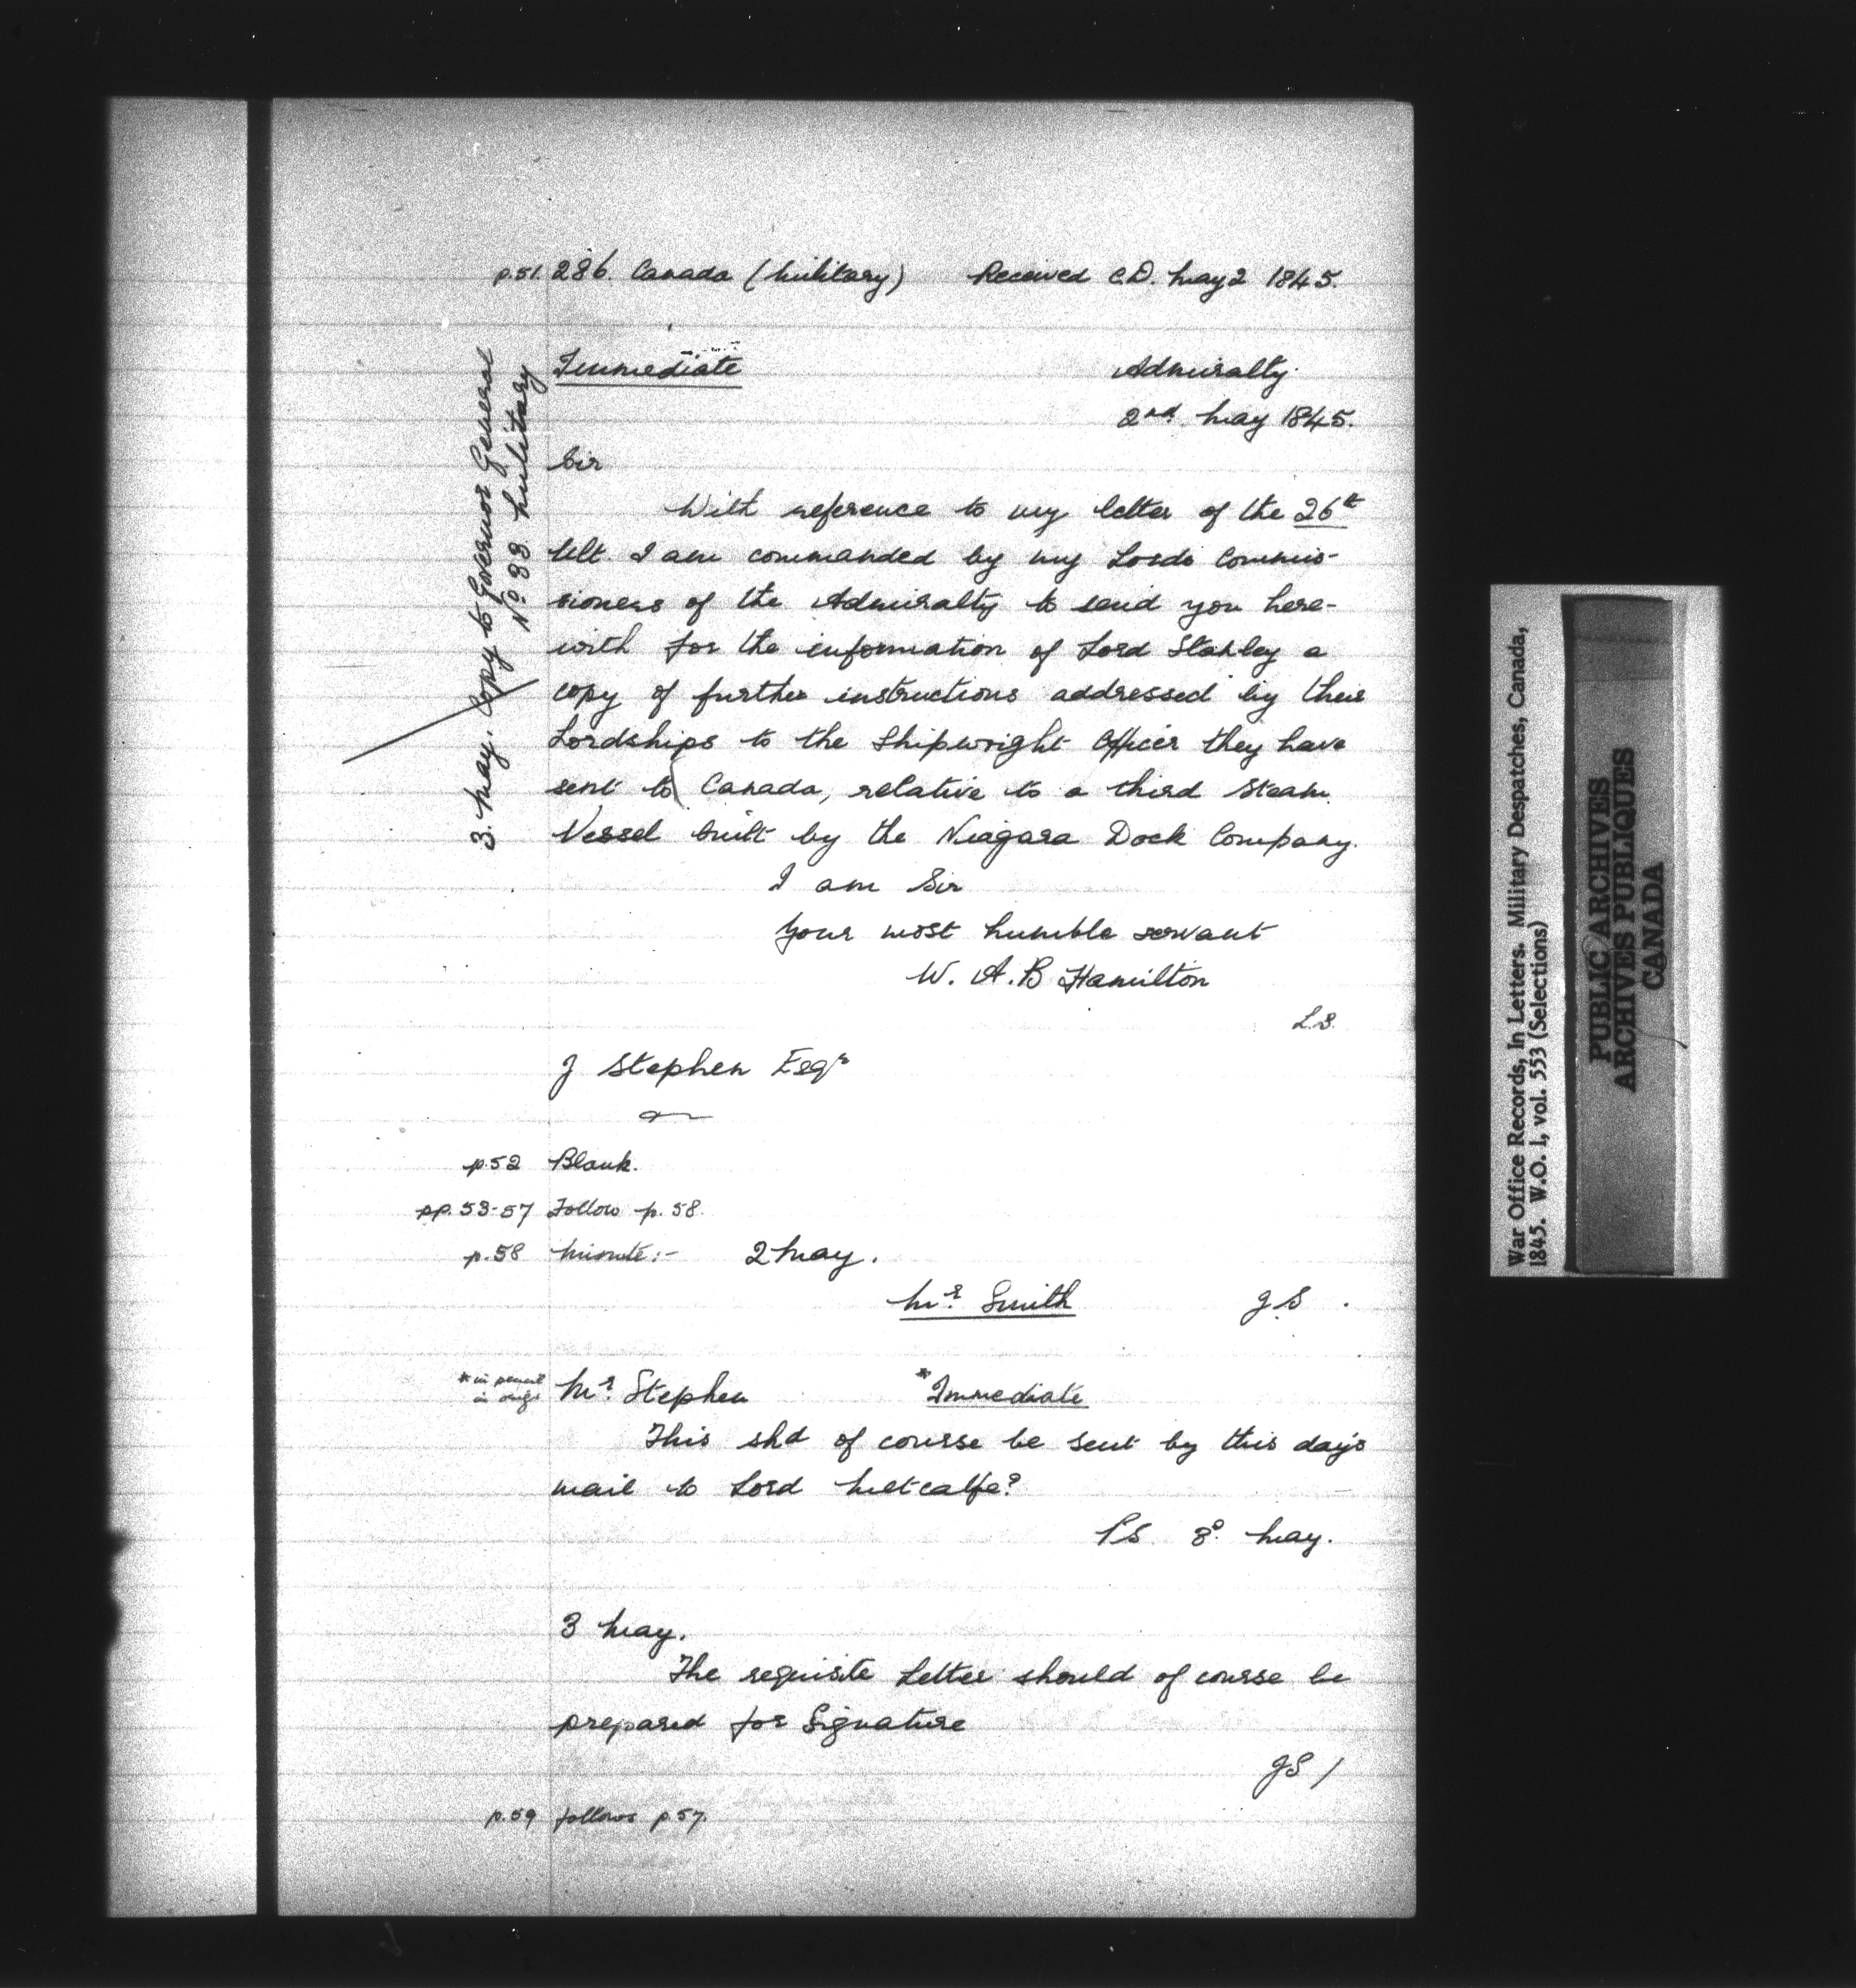 p.51. 286. Canada (Military) Received C.D. May 2 1845.
Immediate Admiralty
2nd May 1845.
3. May. Copy to Governor General
No. 83 Military
Sir
With reference to my letter of the 26th
Ult. I am commanded by my Lords Commis-
sioners of the Admiralty to send you here-
with for the information of Lord Stanley a
copy of further instructions addressed by their
Lordships to the Shipwright Officer they have
sent to Canada, relative to a third Steam
Vessel built by the Niagara Dock Company.
I am Sir
Your most humble servant
W. A. B Hamilton
L.S.
J Stephen Esqr
p.52 Blank.
pp. 53-57 Follow p. 58.
p.58 Minute:- 2 May.
Mr. Smith J.S.
*in pencil
in orig. Mr. Stephen *Immediate
This shd of course be sent by this day's
mail to Lord Metcalfe?
P.S. 3o. May.
3 May.
The requisite Letter should of course be
prepared for Signature
JS /
p.59 follows p 57.
War Office Records, In Letters. Military Despatches, Canada,
1845. W.O. 1, vol. 553 (Selections)
PUBLIC ARCHIVES
ARCHIVES PUBLIQUES
CANADA